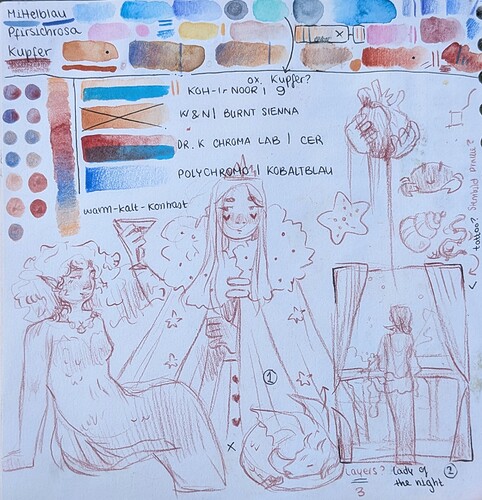 Mittelblau
Pfirsichrosa
Kupfer
ox. Kupfer?
KOH-I-NOOR | 9
W&N | BURNT SIENNA
DR. K CHROMA LAB | CER
POLYCHROMO | KOBALTBLAU
warm-kalt-kontrast
tattoo?
1
x
Layers?
3
lady of
the night
2